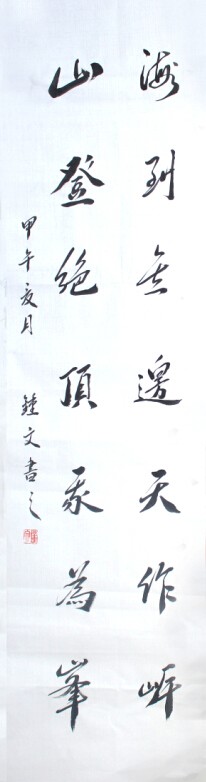 海到無邊天作岸
山登絶頂我為峯
甲午夏月 鍾文書之